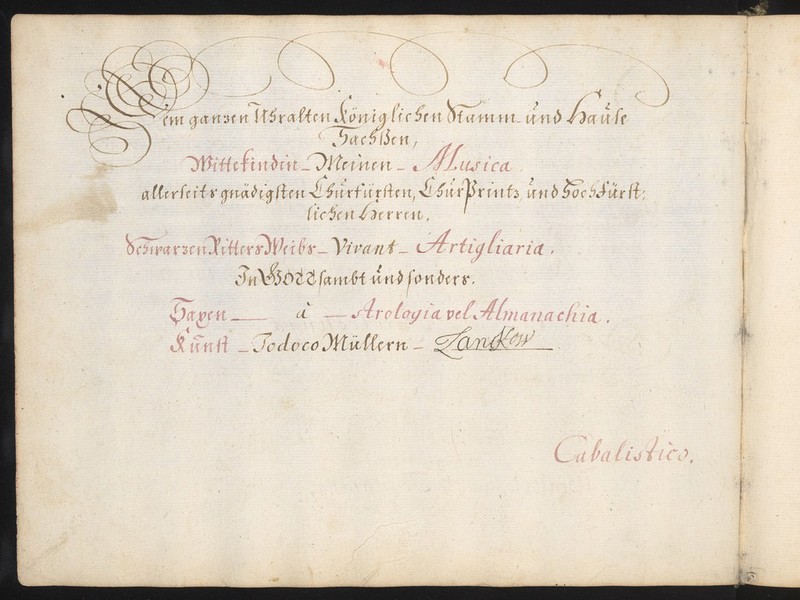 Dem ganzen Uhralten Königlichen Stamm und Hauße
Sachßen,
Wittekindin _ Meinen _ Musica.
allerseits gnädigsten Chürfürsten, ChürPrintz und Hochfürst:
lichen Herren.
Schwarzen Ritters Weibs _ Vivant _ Artigliaria.
In GOTT sambt und sonders.
Sayen _ à _ Arologia vel Almanachia.
Kunst _ Jodoco Müllern _
Cabalistico.